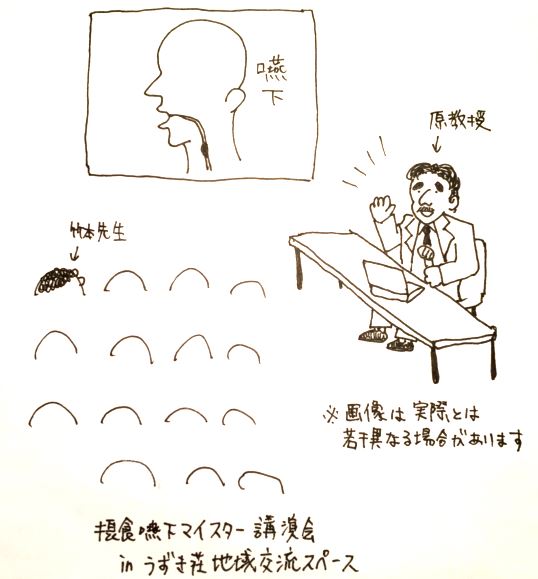 嚥
下
原教授
竹本先生
※画像は実際とは
若干異なる場合があります
摂食嚥下マイスター講演会
in うずき荘地域交流スペース